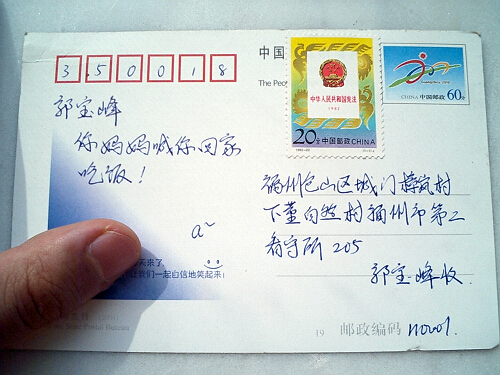 350018
中国
The Peo
中华人民共和国宪法
1982
20分中国邮政CHINA
CHINA中国邮政 60分
郭宝峰
你妈妈喊你回家
吃饭!
a~
福州仓山区城门樟岚村
下董自然村福州市第二
看守所 205
郭宝峰收
天来了,
让我们一起自信地笑起来!
State Postal Bureau
19 邮政编码